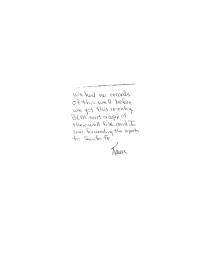 We had no records
of this well before
we got this re-entry.
BLM sent a copy of
their well file and I
am forwarding the reports
to Santa Fe.